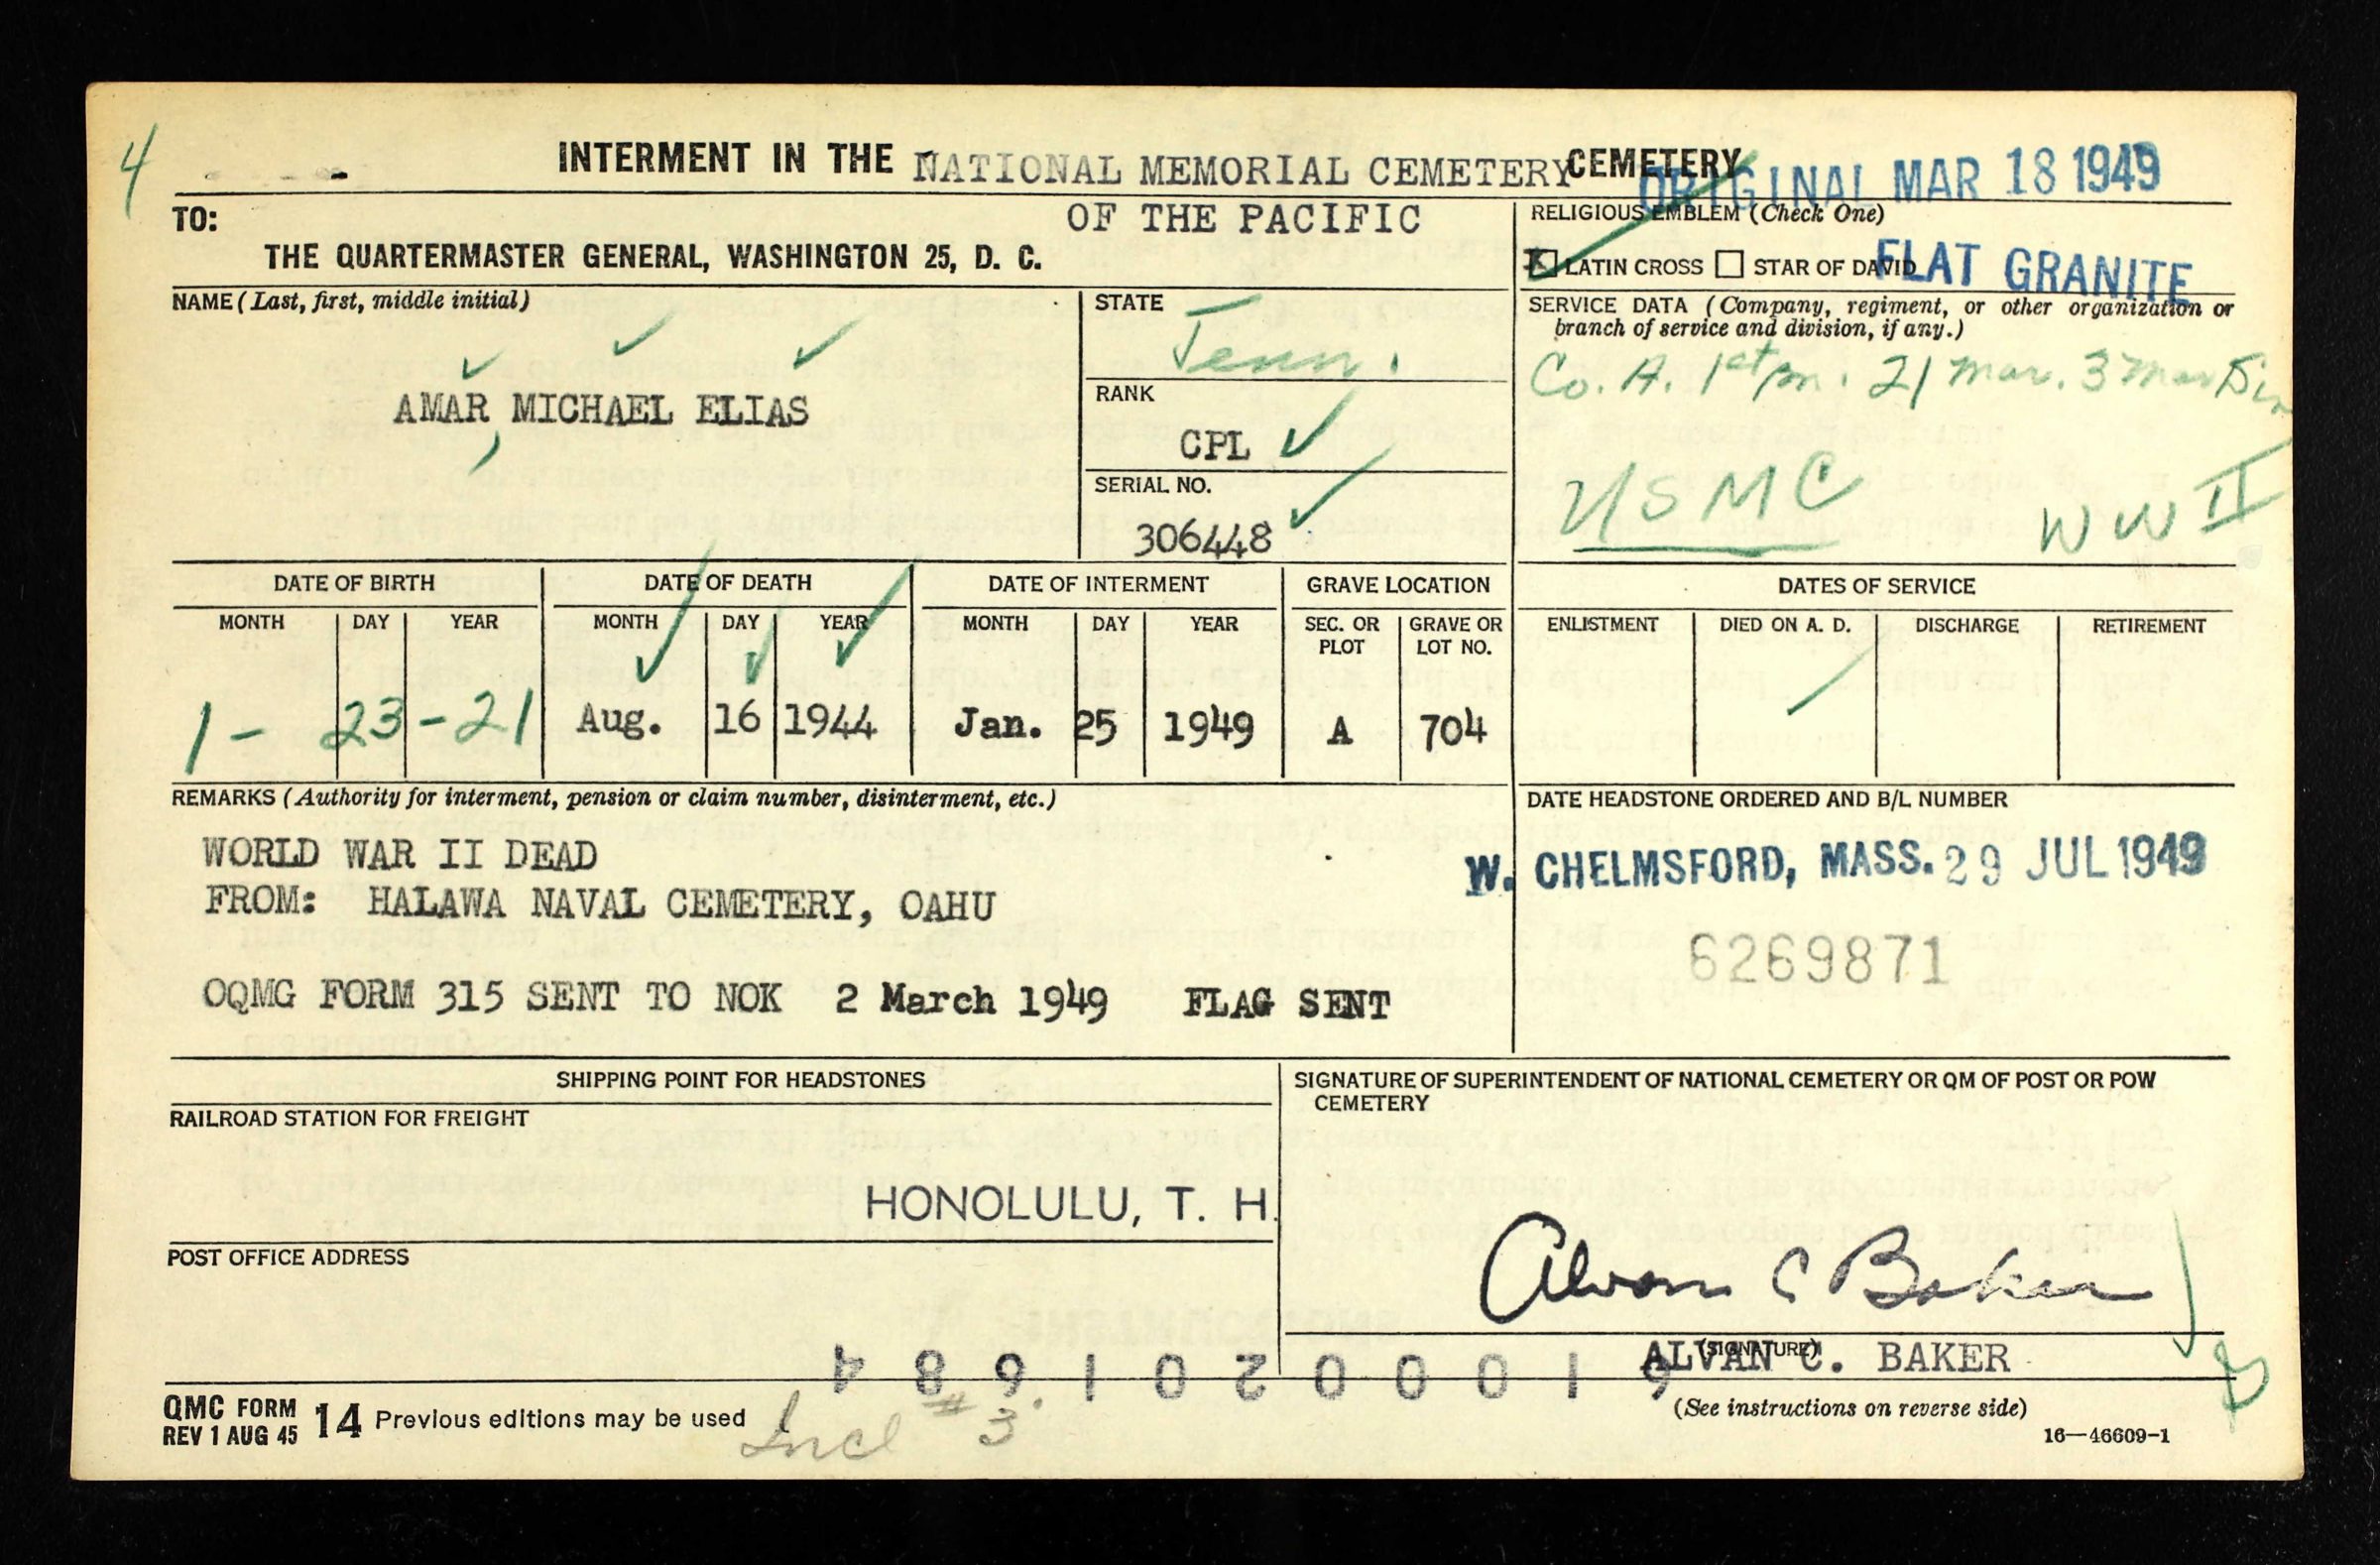 4
INTERMENT IN THE NATIONAL MEMORIAL CEMETERY CEMETERY
OF THE PACIFIC
ORIGINAL MAR 18 1949
TO:
THE QUARTERMASTER GENERAL, WASHINGTON 25, D. C.
RELIGIOUS EMBLEM (Check One)
X LATIN CROSS STAR OF DAVID
FLAT GRANITE
NAME (Last, first, middle initial)
AMAR, MICHAEL ELIAS
STATE
Tenn.
RANK
CPL
SERIAL NO.
306448
SERVICE DATA (Company, regiment, or other organization or
branch of service and division, if any.)
Co. A. 1st 21 Mar. 3 Mar Div
USMC WW II
DATE OF BIRTH
MONTH DAY YEAR
1- 23-21
DATE OF DEATH
MONTH DAY YEAR
Aug. 16 1944
DATE OF INTERMENT
MONTH DAY YEAR
Jan. 25 1949
GRAVE LOCATION
SEC. OR PLOT
GRAVE OR LOT NO.
A 704
DATES OF SERVICE
ENLISTMENT DIED ON A. D. DISCHARGE RETIREMENT
REMARKS (Authority for interment, pension or claim number, disinterment, etc.)
WORLD WAR II DEAD
FROM: HALAWA NAVAL CEMETERY, OAHU
OQMG FORM 315 SENT TO NOK 2 March 1949 FLAG SENT
DATE HEADSTONE ORDERED AND B/L NUMBER
W. CHELMSFORD, MASS. 29 JUL 1949
6269871
SHIPPING POINT FOR HEADSTONES
RAILROAD STATION FOR FREIGHT
HONOLULU, T. H.
POST OFFICE ADDRESS
SIGNATURE OF SUPERINTENDENT OF NATIONAL CEMETERY OR QM OF POST OR POW
CEMETERY
Alvan C Baker
(SIGNATURE)
ALVAN C. BAKER
(See instructions on reverse side)
16—46609-1
48910200019
QMC FORM 14 Previous editions may be used
REV 1 AUG 45
Incl # 3